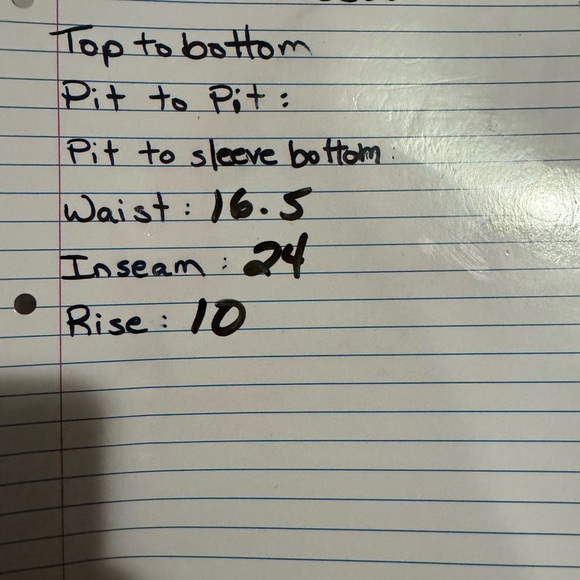 Top to bottom
Pit to Pit :
Pit to sleeve bottom :
Waist : 16.5
Inseam : 24
Rise : 10